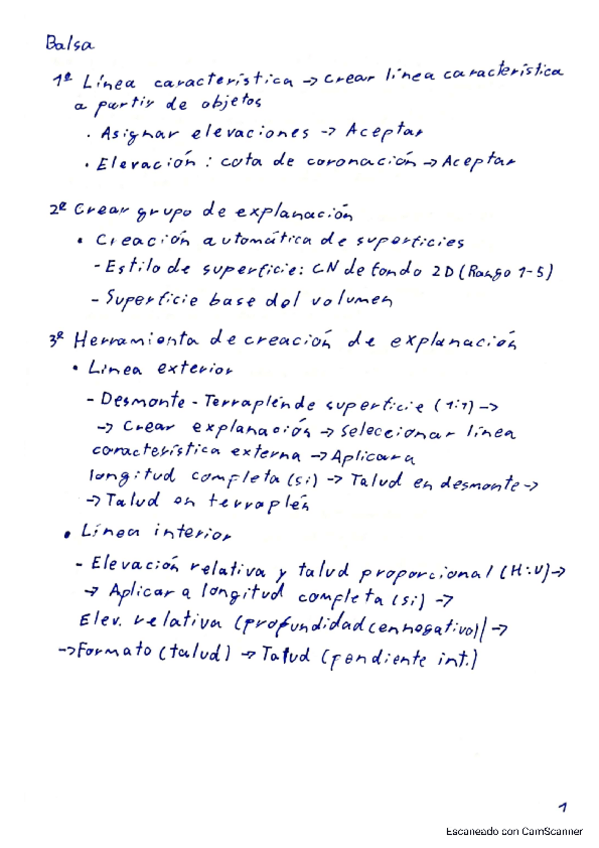 Balsa
1º Línea característica → Crear línea característica
a partir de objetos
• Asignar elevaciones → Aceptar
• Elevación : cota de coronación → Aceptar
2º Crear grupo de explanación
• Creación automática de superficies
- Estilo de superficie: CN de fondo 2D (Rango 1-5)
- Superficie base del volumen
3º Herramienta de creación de explanación
• Línea exterior
- Desmonte - Terraplén de superficie (1:1) →
→ Crear explanación → Seleccionar línea
característica externa → Aplicar a
longitud completa (si) → Talud en desmonte →
→ Talud en terraplén
• Línea interior
- Elevación relativa y talud proporcional (H:V) →
→ Aplicar a longitud completa (si) →
Elev. relativa (profundidad (en negativo)) →
→ Formato (talud) → Talud (pendiente int.)
1
Escaneado con CamScanner